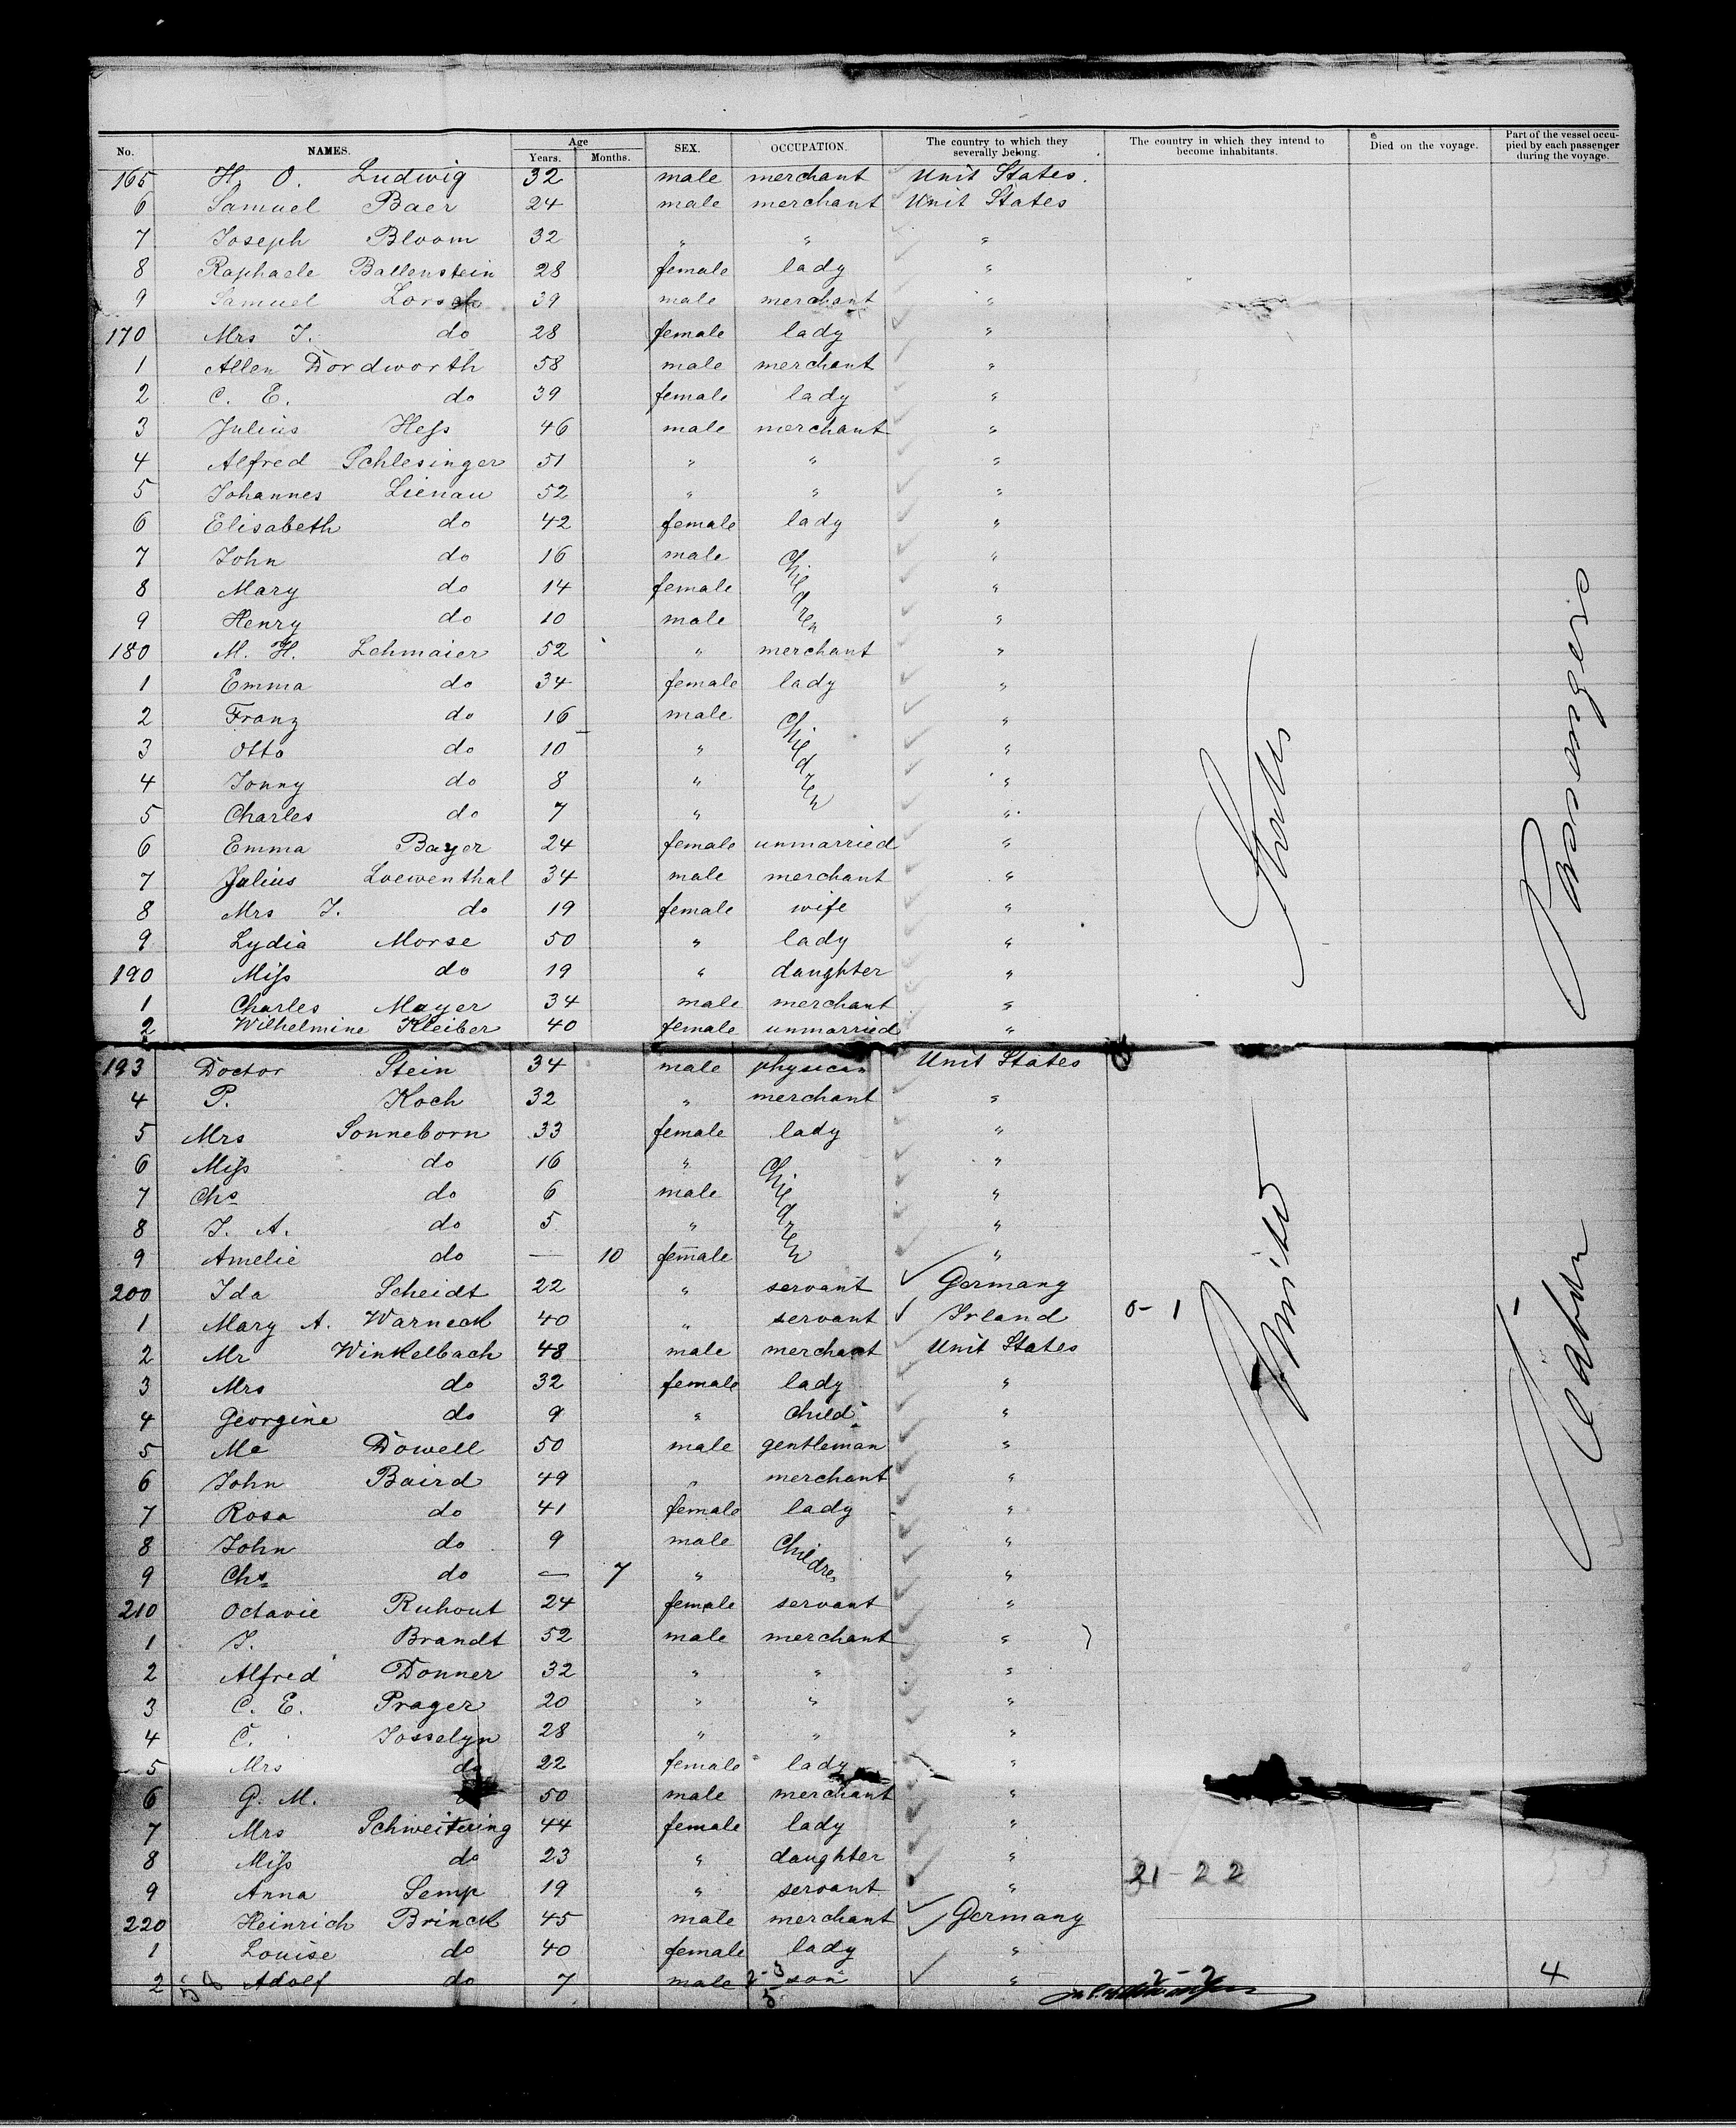 No. NAMES. Age Years. Months. SEX. OCCUPATION. The country to which they severally belong. The country in which they intend to become inhabitants. Died on the voyage. Part of the vessel occupied by each passenger during the voyage.
165 H. O. Ludwig 32 male merchant Unit States.
6 Samuel Baer 24 male merchant Unit States
7 Joseph Bloom 32 " " "
8 Raphaele Ballenstein 28 female lady "
9 Samuel Lorsch 39 male merchant "
170 Mrs J. do 28 female lady "
1 Allen Dordworth 58 male merchant "
2 C. E. do 39 female lady "
3 Julius Hess 46 male merchant "
4 Alfred Schlesinger 51 " " "
5 Johannes Lienau 52 " " "
6 Elisabeth do 42 female lady "
7 John do 16 male Children "
8 Mary do 14 female "
9 Henry do 10 male "
180 M. H. Lehmaier 52 " merchant "
1 Emma do 34 female lady "
2 Franz do 16 male Children "
3 Otto do 10 " "
4 Jonny do 8 " "
5 Charles do 7 " "
6 Emma Bayer 24 female unmarried "
7 Julius Loewenthal 34 male merchant "
8 Mrs J. do 19 female wife "
9 Lydia Morse 50 " lady "
190 Miss do 19 " daughter "
1 Charles Mayer 34 male merchant "
2 Wilhelmine Kleiber 40 female unmarried "
193 Doctor Stein 34 male physican Unit States
4 P. Koch 32 " merchant "
5 Mrs Sonneborn 33 female lady "
6 Miss do 16 " Children "
7 Chs do 6 male "
8 J. A. do 5 " "
9 Amelie do — 10 female "
200 Ida Scheidt 22 " servant Germany
1 Mary A. Warneck 40 " servant Irland 0-1
2 Mr Winkelbach 48 male merchant Unit States
3 Mrs do 32 female lady "
4 Georgine do 9 " Child "
5 Mc Dowell 50 male gentleman "
6 John Baird 49 " merchant "
7 Rosa do 41 female lady "
8 John do 9 male Children "
9 Chs do — 7 " "
210 Octavie Ruhout 24 female servant "
1 J. Brandt 52 male merchant "
2 Alfred Donner 32 " " "
3 C. E. Prager 20 " " "
4 C. Josselyn 28 " " "
5 Mrs do 22 female lady "
6 G. M. 50 male merchant "
7 Mrs Schweitering 44 female lady "
8 Miss do 23 " daughter "
9 Anna Semp 19 " servant "
21-22
220 Heinrich Brinck 45 male merchant Germany
1 Louise do 40 female lady "
2 Adolf do 7 male son "
2-3
5
2-2
4
United States
Cabin Passengers